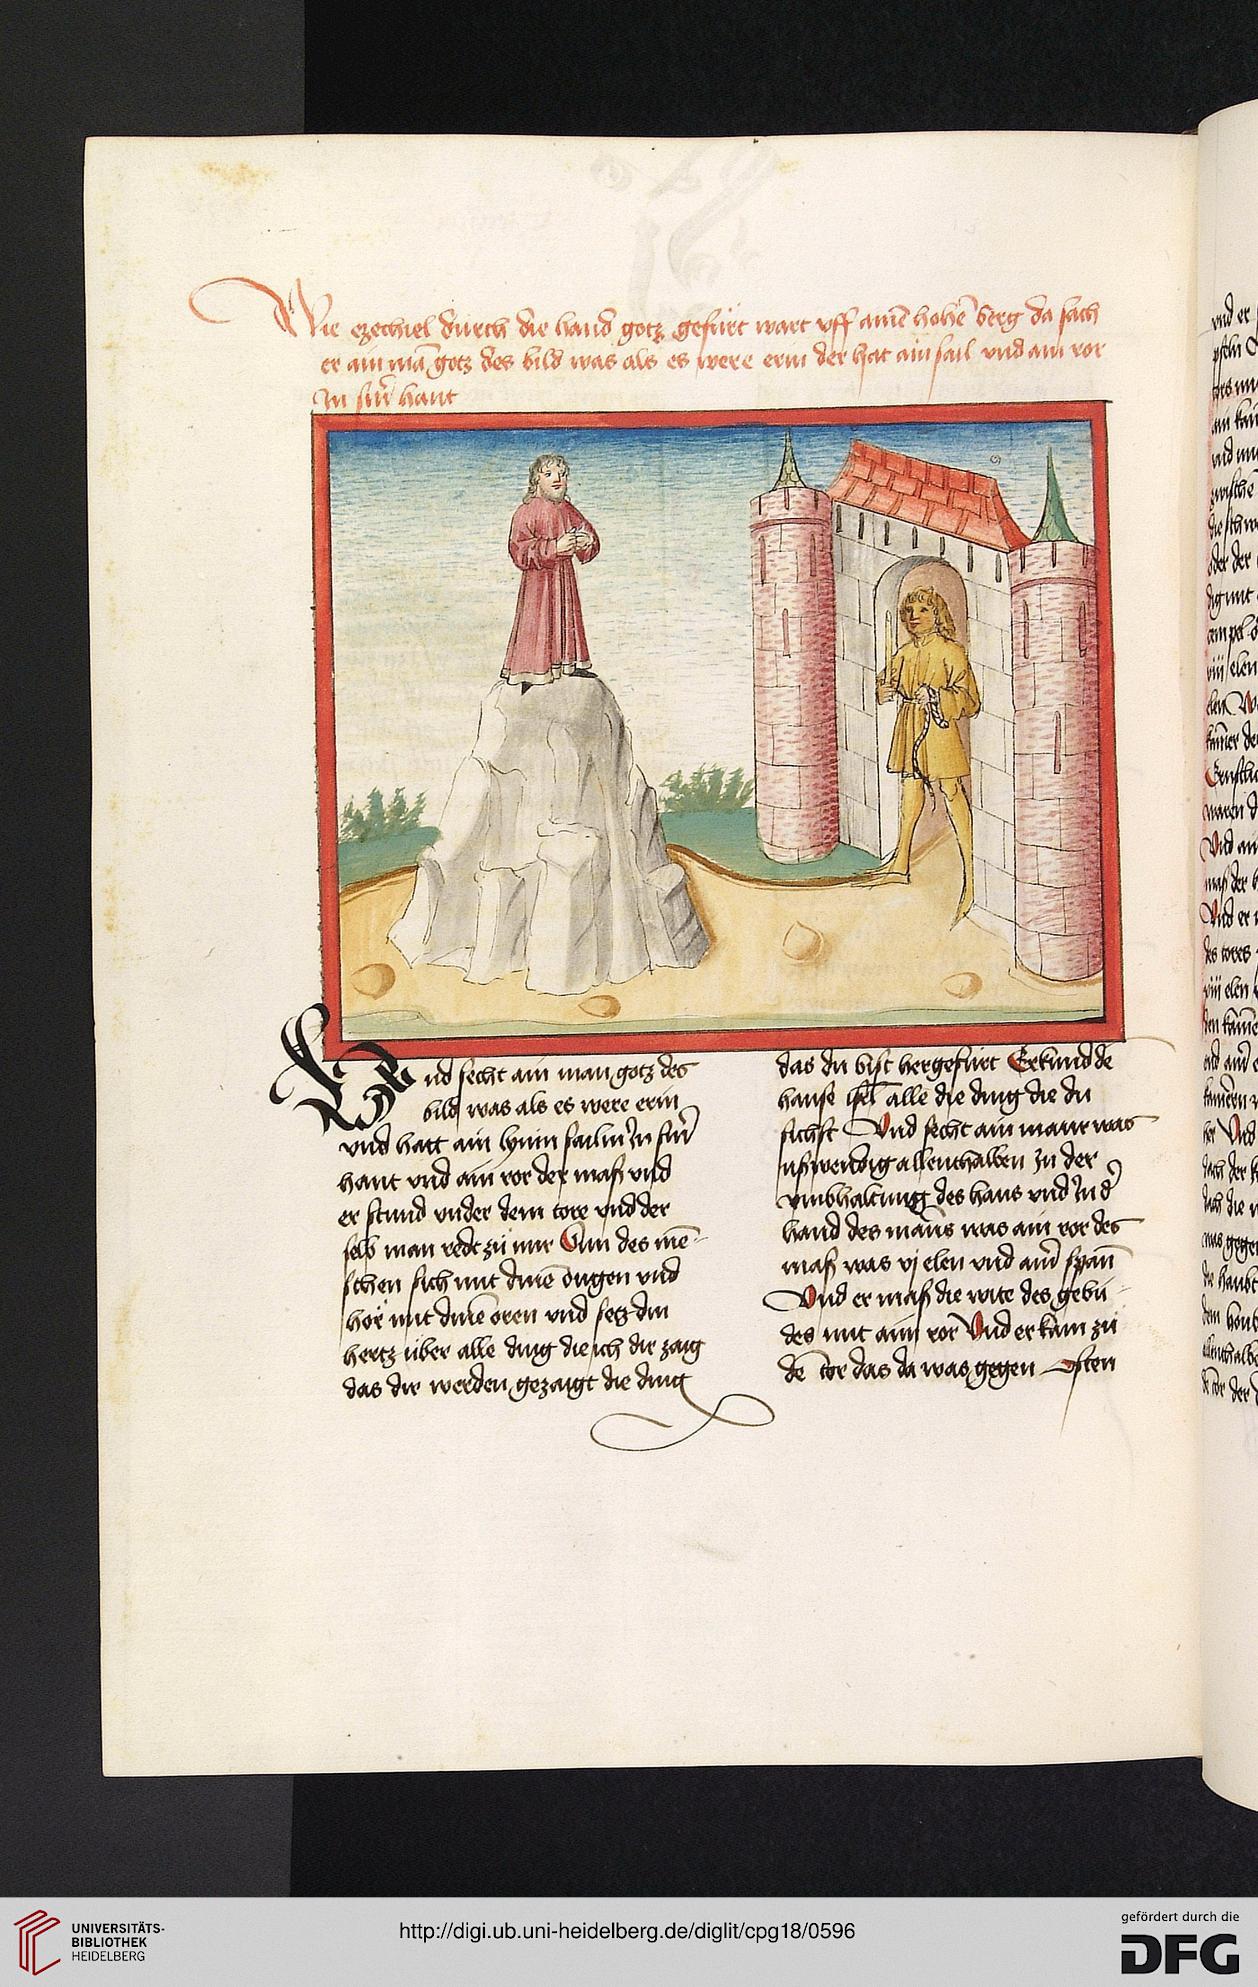 Wie ezechiel durch die hand gotz gefürt wart vff ainē hohē berg da sach
er ain mā gotz des bild was als es were erin der hat ain sail vnd ain ror
In sinr̄ hant
Vnd secht ain man gotz des
bild was als es were erin
vnd hatt ain lynin sailin In sinr̄
hant vnd ain ror der maß vnd
er stund vnder dem tore vnd der
selb man redt zü mir Sun des mē-
schen sich mit dinē ougen vnd
hör mit dinē oren vnd setz din
hertz über alle ding die ich dir zaig
das dir werden gezaigt die ding
das du bist hergefürt Erkünd de
hause isrl̄ alle die ding die du
sichst Vnd secht ain maur was
ußwendig allenthalben zu der
vmbhaltung des haus vnd In d'
hand des mans was ain ror des
maß was vj elen vnd ainr̄ span̄
Vnd er maß die wite des gebü-
des mit aim ror Vnd er kam zü
dē tor das da was gegen Osten
UNIVERSITÄTS-
BIBLIOTHEK
HEIDELBERG
http://digi.ub.uni-heidelberg.de/diglit/cpg18/0596
gefördert durch die
DFG